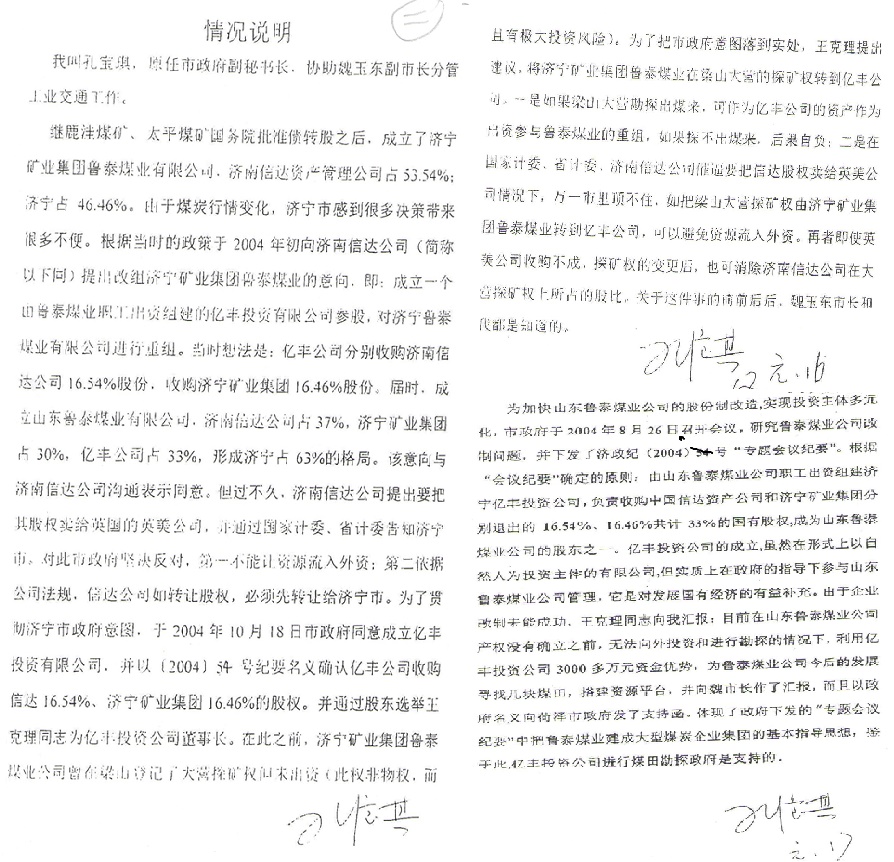 情况说明
我叫孔宝琪，原任市政府副秘书长，协助魏玉东副市长分管
工业交通工作。
继鹿洼煤矿、太平煤矿国务院批准债转股之后，成立了济宁
矿业集团鲁泰煤业有限公司，济南信达资产管理公司占53.54%；
济宁占 46.46%。由于煤炭行情变化，济宁市感到很多决策带来
很多不便。根据当时的政策于 2004 年初向济南信达公司（简称
以下同）提出改组济宁矿业集团鲁泰煤业的意向，即：成立一个
由鲁泰煤业职工出资组建的亿丰投资有限公司参股，对济宁鲁泰
煤业有限公司进行重组。当时想法是：亿丰公司分别收购济南信
达公司 16.54%股份，收购济宁矿业集团 16.46%股份。届时，成
立山东鲁泰煤业有限公司，济南信达公司占 37%，济宁矿业集团
占 30%，亿丰公司占 33%，形成济宁占 63%的格局。该意向与
济南信达公司沟通表示同意。但过不久，济南信达公司提出要把
其股权卖给英国的英美公司，并通过国家计委、省计委告知济宁
市。对此市政府坚决反对，第一不能让资源流入外资；第二依据
公司法规，信达公司如转让股权，必须先转让给济宁市。为了贯
彻济宁市政府意图，于 2004 年 10 月 18 日市政府同意成立亿丰
投资有限公司，并以（2004）54 号纪要名义确认亿丰公司收购
信达 16.54%、济宁矿业集团 16.46%的股权。并通过股东选举王
克理同志为亿丰投资公司董事长。在此之前，济宁矿业集团鲁泰
煤业公司曾在梁山登记了大营探矿权但未出资（此权非物权，而
且有极大投资风险）。为了把市政府意图落到实处，王克理提出
建议，将济宁矿业集团鲁泰煤业在梁山大营的探矿权转到亿丰公
司。一是如果梁山大营勘探出煤来，可作为亿丰公司的资产作为
出资参与鲁泰煤业的重组，如果探不出煤来，后果自负；二是在
国家计委、省计委、济南信达公司催逼要把信达股权卖给英美公
司情况下，万一市里顶不住，如把梁山大营探矿权由济宁矿业集
团鲁泰煤业转到亿丰公司，可以避免资源流入外资。再者即使英
美公司收购不成，探矿权的变更后，也可消除济南信达公司在大
营探矿权上所占的股比。关于这件事的前前后后，魏玉东市长和
我都是知道的。
为加快山东鲁泰煤业公司的股份制改造，实现投资主体多元
化，市政府于 2004 年 8 月 26 日召开会议。研究鲁泰煤业公司改
制问题，并下发了济政纪（2004）54 号“专题会议纪要”。根据
“会议纪要”确定的原则：由山东鲁泰煤业公司职工出资组建济
宁亿丰投资公司，负责收购中国信达资产公司和济宁矿业集团分
别退出的 16.54%、16.46%共计 33%的国有股权，成为山东鲁泰
煤业公司的股东之一。亿丰投资公司的成立，虽然在形式上以自
然人为投资主体的有限公司，但实质上在政府的指导下参与山东
鲁泰煤业公司管理，它是对发展国有经济的有益补充。由于企业
改制未能成功，王克理同志向我汇报：目前在山东鲁泰煤业公司
产权没有确立之前，无法向外投资和进行勘探的情况下，利用亿
丰投资公司 3000 多万元资金优势，为鲁泰煤业公司今后的发展
寻找几块煤田，搭建资源平台，并向魏市长作了汇报，而且以政
府名义向菏泽市政府发了支持函。体现了政府下发的“专题会议
纪要”中把鲁泰煤业建成大型煤炭企业集团的基本指导思想，鉴
于此，亿丰投资公司进行煤田勘探政府是支持的。